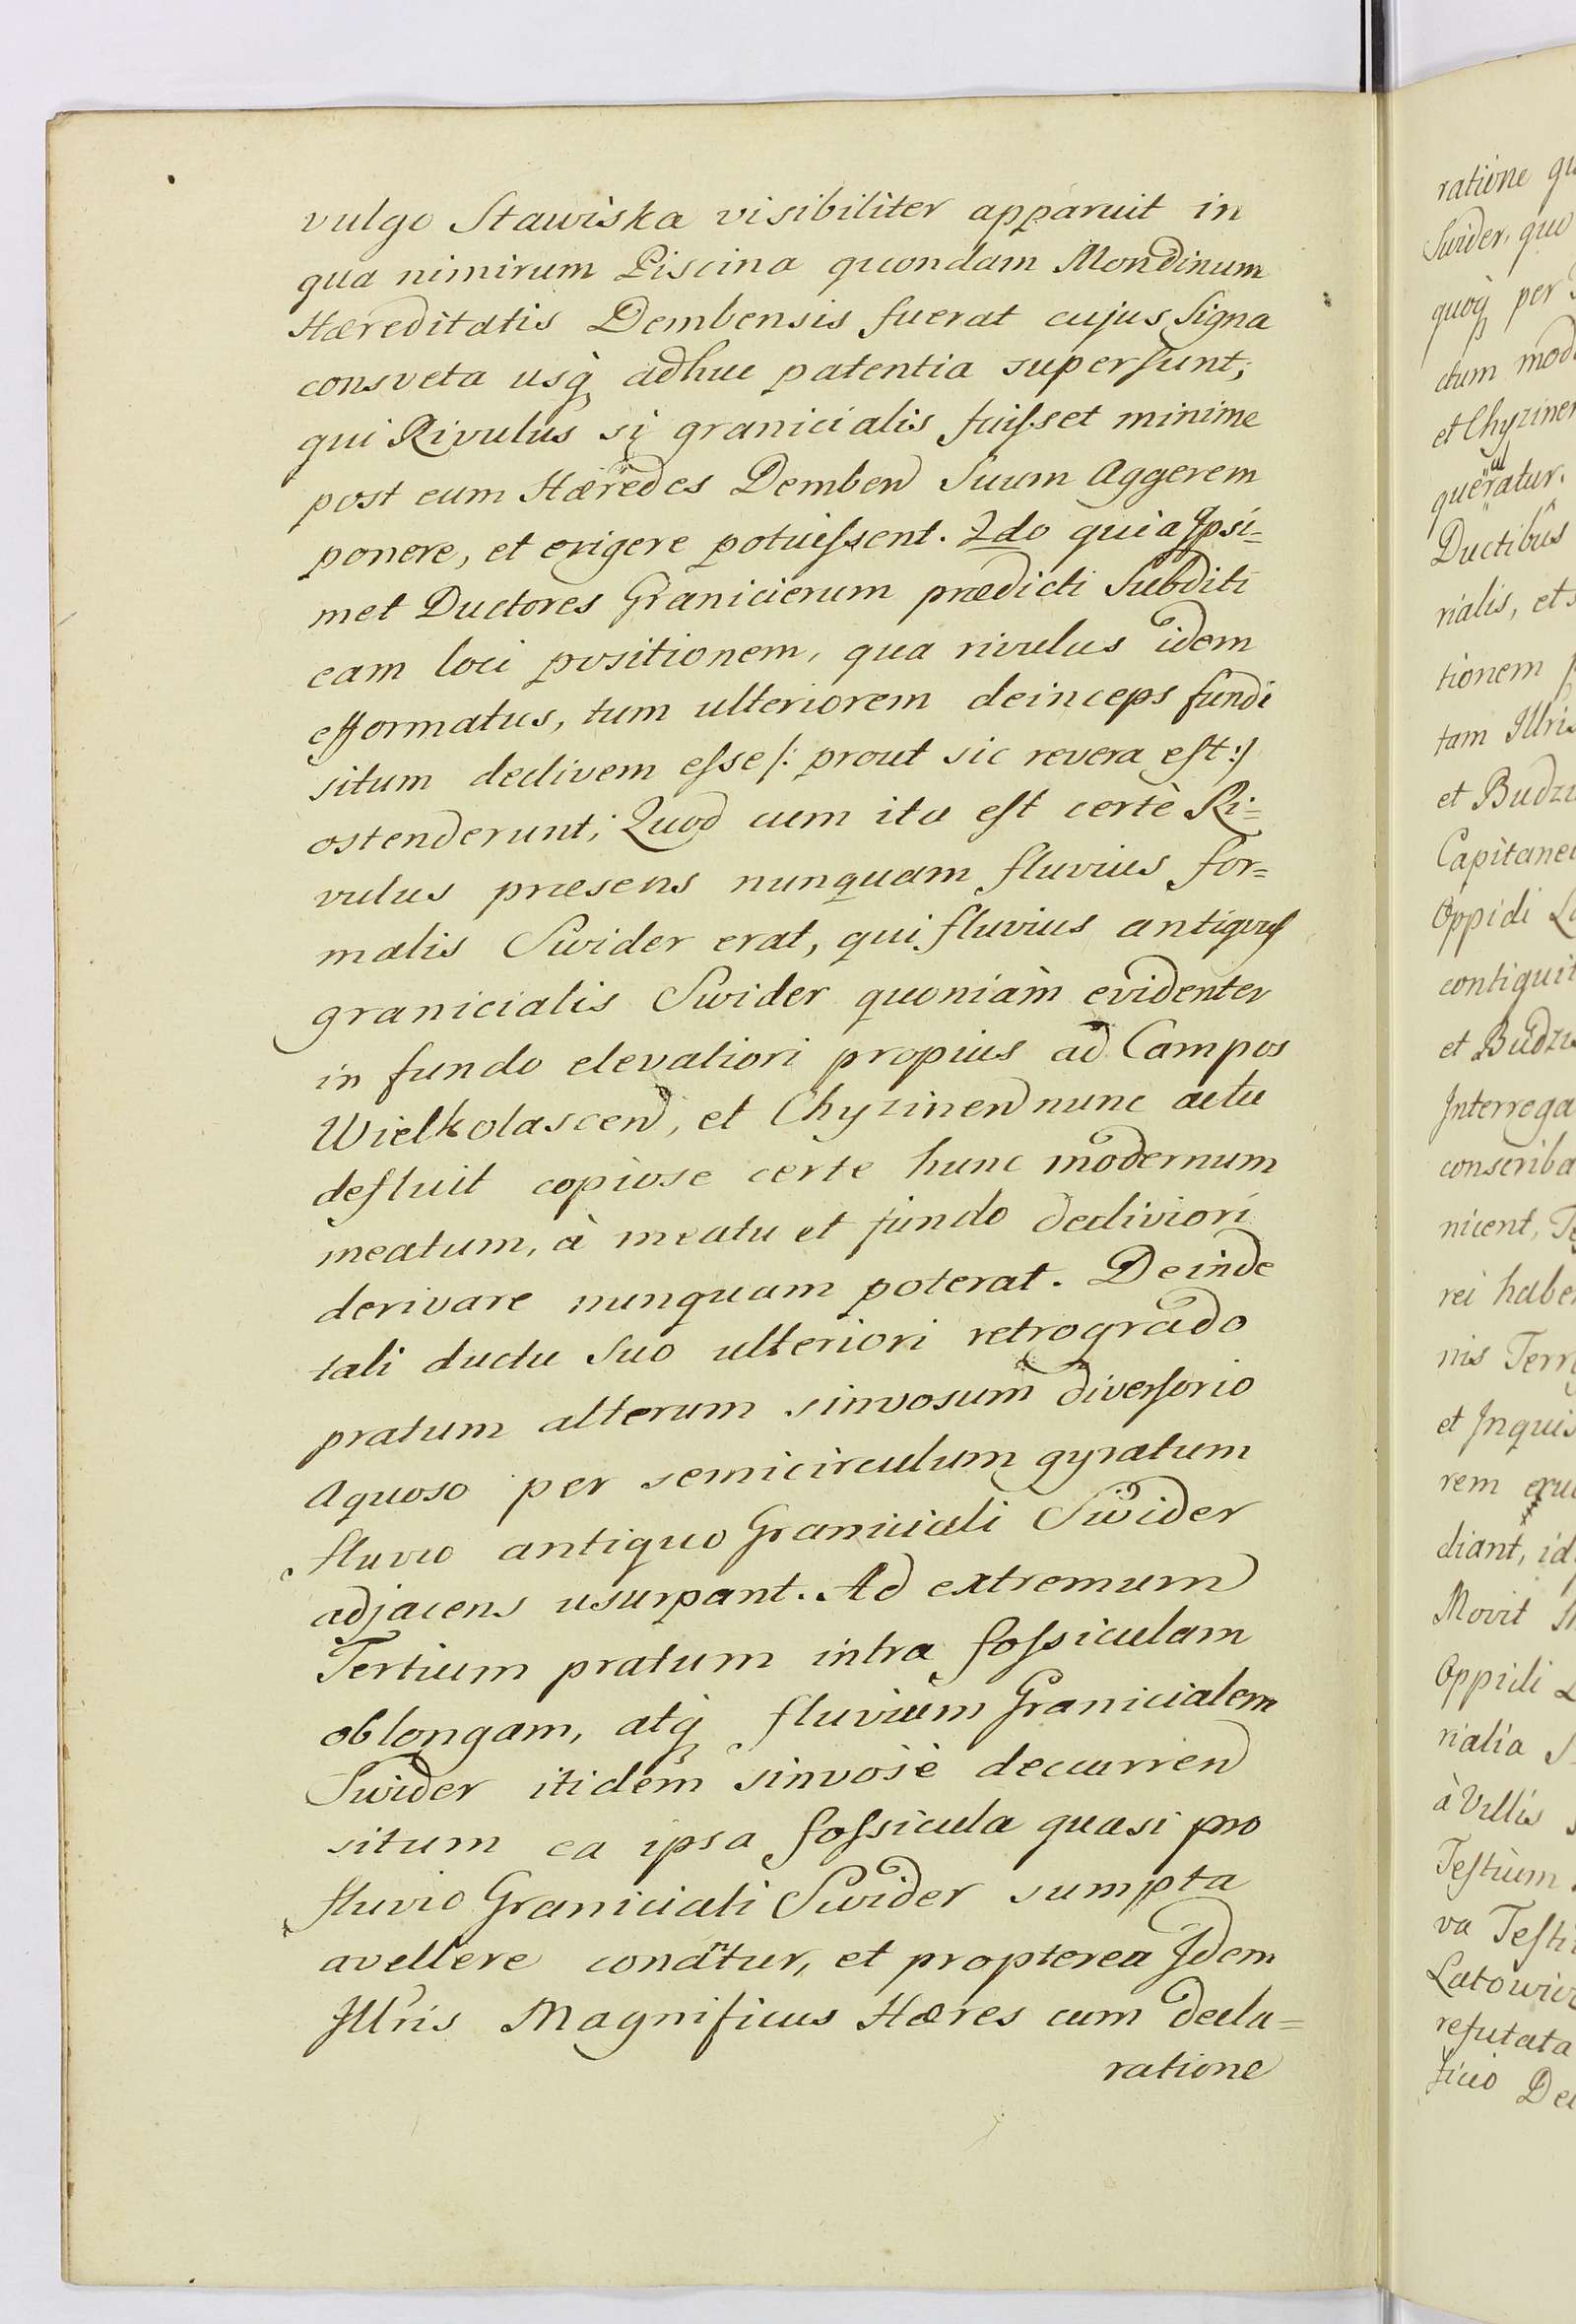 vulgo Stawiska visibiliter apparuit in
qua nimirum Piscina quondam Mondinum
Hæreditatis Dembensis fuerat cujus Signa
consveta usq₃ adhuc patentia supersunt,
qui Rivulus si granicialis fuisset minime
post eum Hæredes Demben Suum Aggerem
ponere, et erigere potuissent. 2do quia Ipsi=
met Ductores Granicierum prædicti Subditi
eam loci positionem, qua rivulus idem
efformatus, tum ulteriorem deinceps fundi
situm declivem esse /: prout sic revera est :/
ostenderunt; Quod cum ita est certè Ri=
vulus præsens nunquam fluvius for=
malis Swider erat, qui fluvius antiqvus
granicialis Swider quoniàm evidenter
in fundo elevatiori propius ad Campos
Wielkolascen, et Chyzinen nunc actu
defluit copiose certe hunc modernum
meatum, à meatu et fundo decliviori
derivare nunquam poterat. Deinde
tali ductu Suo ulteriori retrogrado
pratum alterum sinvosum diversorio
Aquoso per semicirculum gyratum
fluvio antiquo Graniciali Swider
adjacens usurpant. Ad extremum
Tertium pratum intra fossiculam
oblongam, atq₃ fluvium Granicialem
Swider itidem sinvosè decurren
situm ea ipsa fossicula quasi pro
fluvio Graniciali Swider sumpta
avellere conantur, et propterea Idem
Illris Magnificus Hæres cum decla=
ratione
ratione
Swider, quo
quoq₃ per
ctum
et Chyzinen
queratur.
Ductibus
rialis, et
tionem
tam Illris
et
Capitanei
Oppidi
contiguit
et
Interroga
conscriba
nicent,
rei
nis
et Inquis
rem
diant, id
Movit
Oppidi
rialia
à Villis
Testium
va
Latowic
refutata
ficio